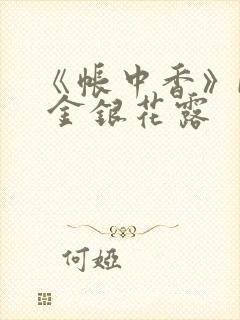 《帐中香》
金银花露
何婭